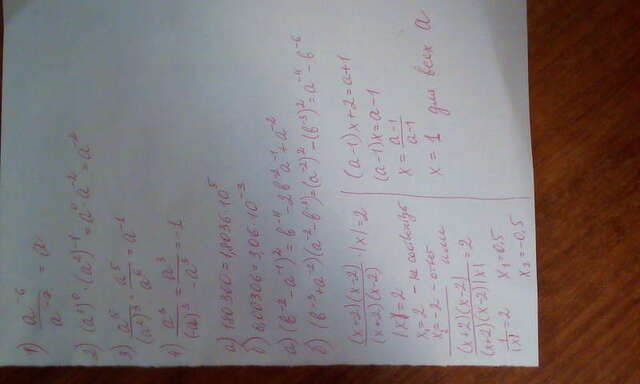 1) a⁻⁶ / a⁻² = a
2) (a³)⁰ · (a²)⁻¹ = a⁰ · a⁻² = a⁻²
3) a⁵ / (a²)³ = a⁵ / a⁶ = a⁻¹
4) a³ / (-a)³ = a³ / -a³ = -1
а) 180360 = 1,8036·10⁵
б) 0,00306 = 3,06·10⁻³
а) (b⁻² - a⁻¹)² = b⁻⁴ - 2b⁻²a⁻¹ + a⁻²
б) (b⁻³ + a⁻²)(a⁻² - b⁻³) = (a⁻²)² - (b⁻³)² = a⁻⁴ - b⁻⁶
(x+2)(x-2) / (x+2)(x-2) · |x| = 2
|x| = 2
x₁ = 2 - не
x₂ = -2 - ответ
или
(x+2)(x-2) / (x+2)(x-2)|x| = 2
1 / |x| = 2
x₁ = 0,5
x₂ = -0,5
(a-1)x + 2 = a + 1
(a-1)x = a - 1
x = a-1 / a-1
x = 1 для всех a